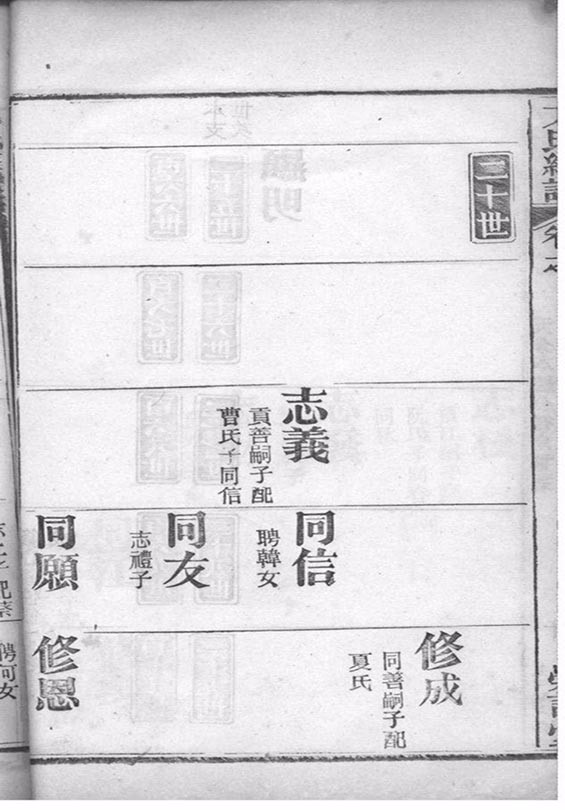 二十世
志義
貢善嗣子配
曹氏子同信
同信
聘韓女
同友
志禮子
同願
修成
同善嗣子配
夏氏
修恩
聘何女